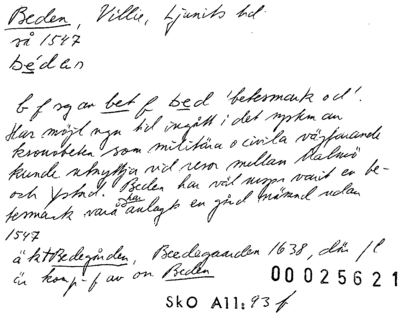 Beden, Villie, Ljunits hd
så 1547
bédan
b f sg av bet f bed 'betesmark o d'.
Har möjl ngn tid ingått i det system av
kronobeten som militära o civila vägfarande
kunde utnyttja vid resor mellan Malmö
och Ystad. Beden har väl urspr varit en be-
tesmark vara har anlagts en gård nämnd redan
1547
ä kt Bedegården, Beedegaarden 1638, där fl
är komp-f av on Beden
00025621
SkO All: 93 f